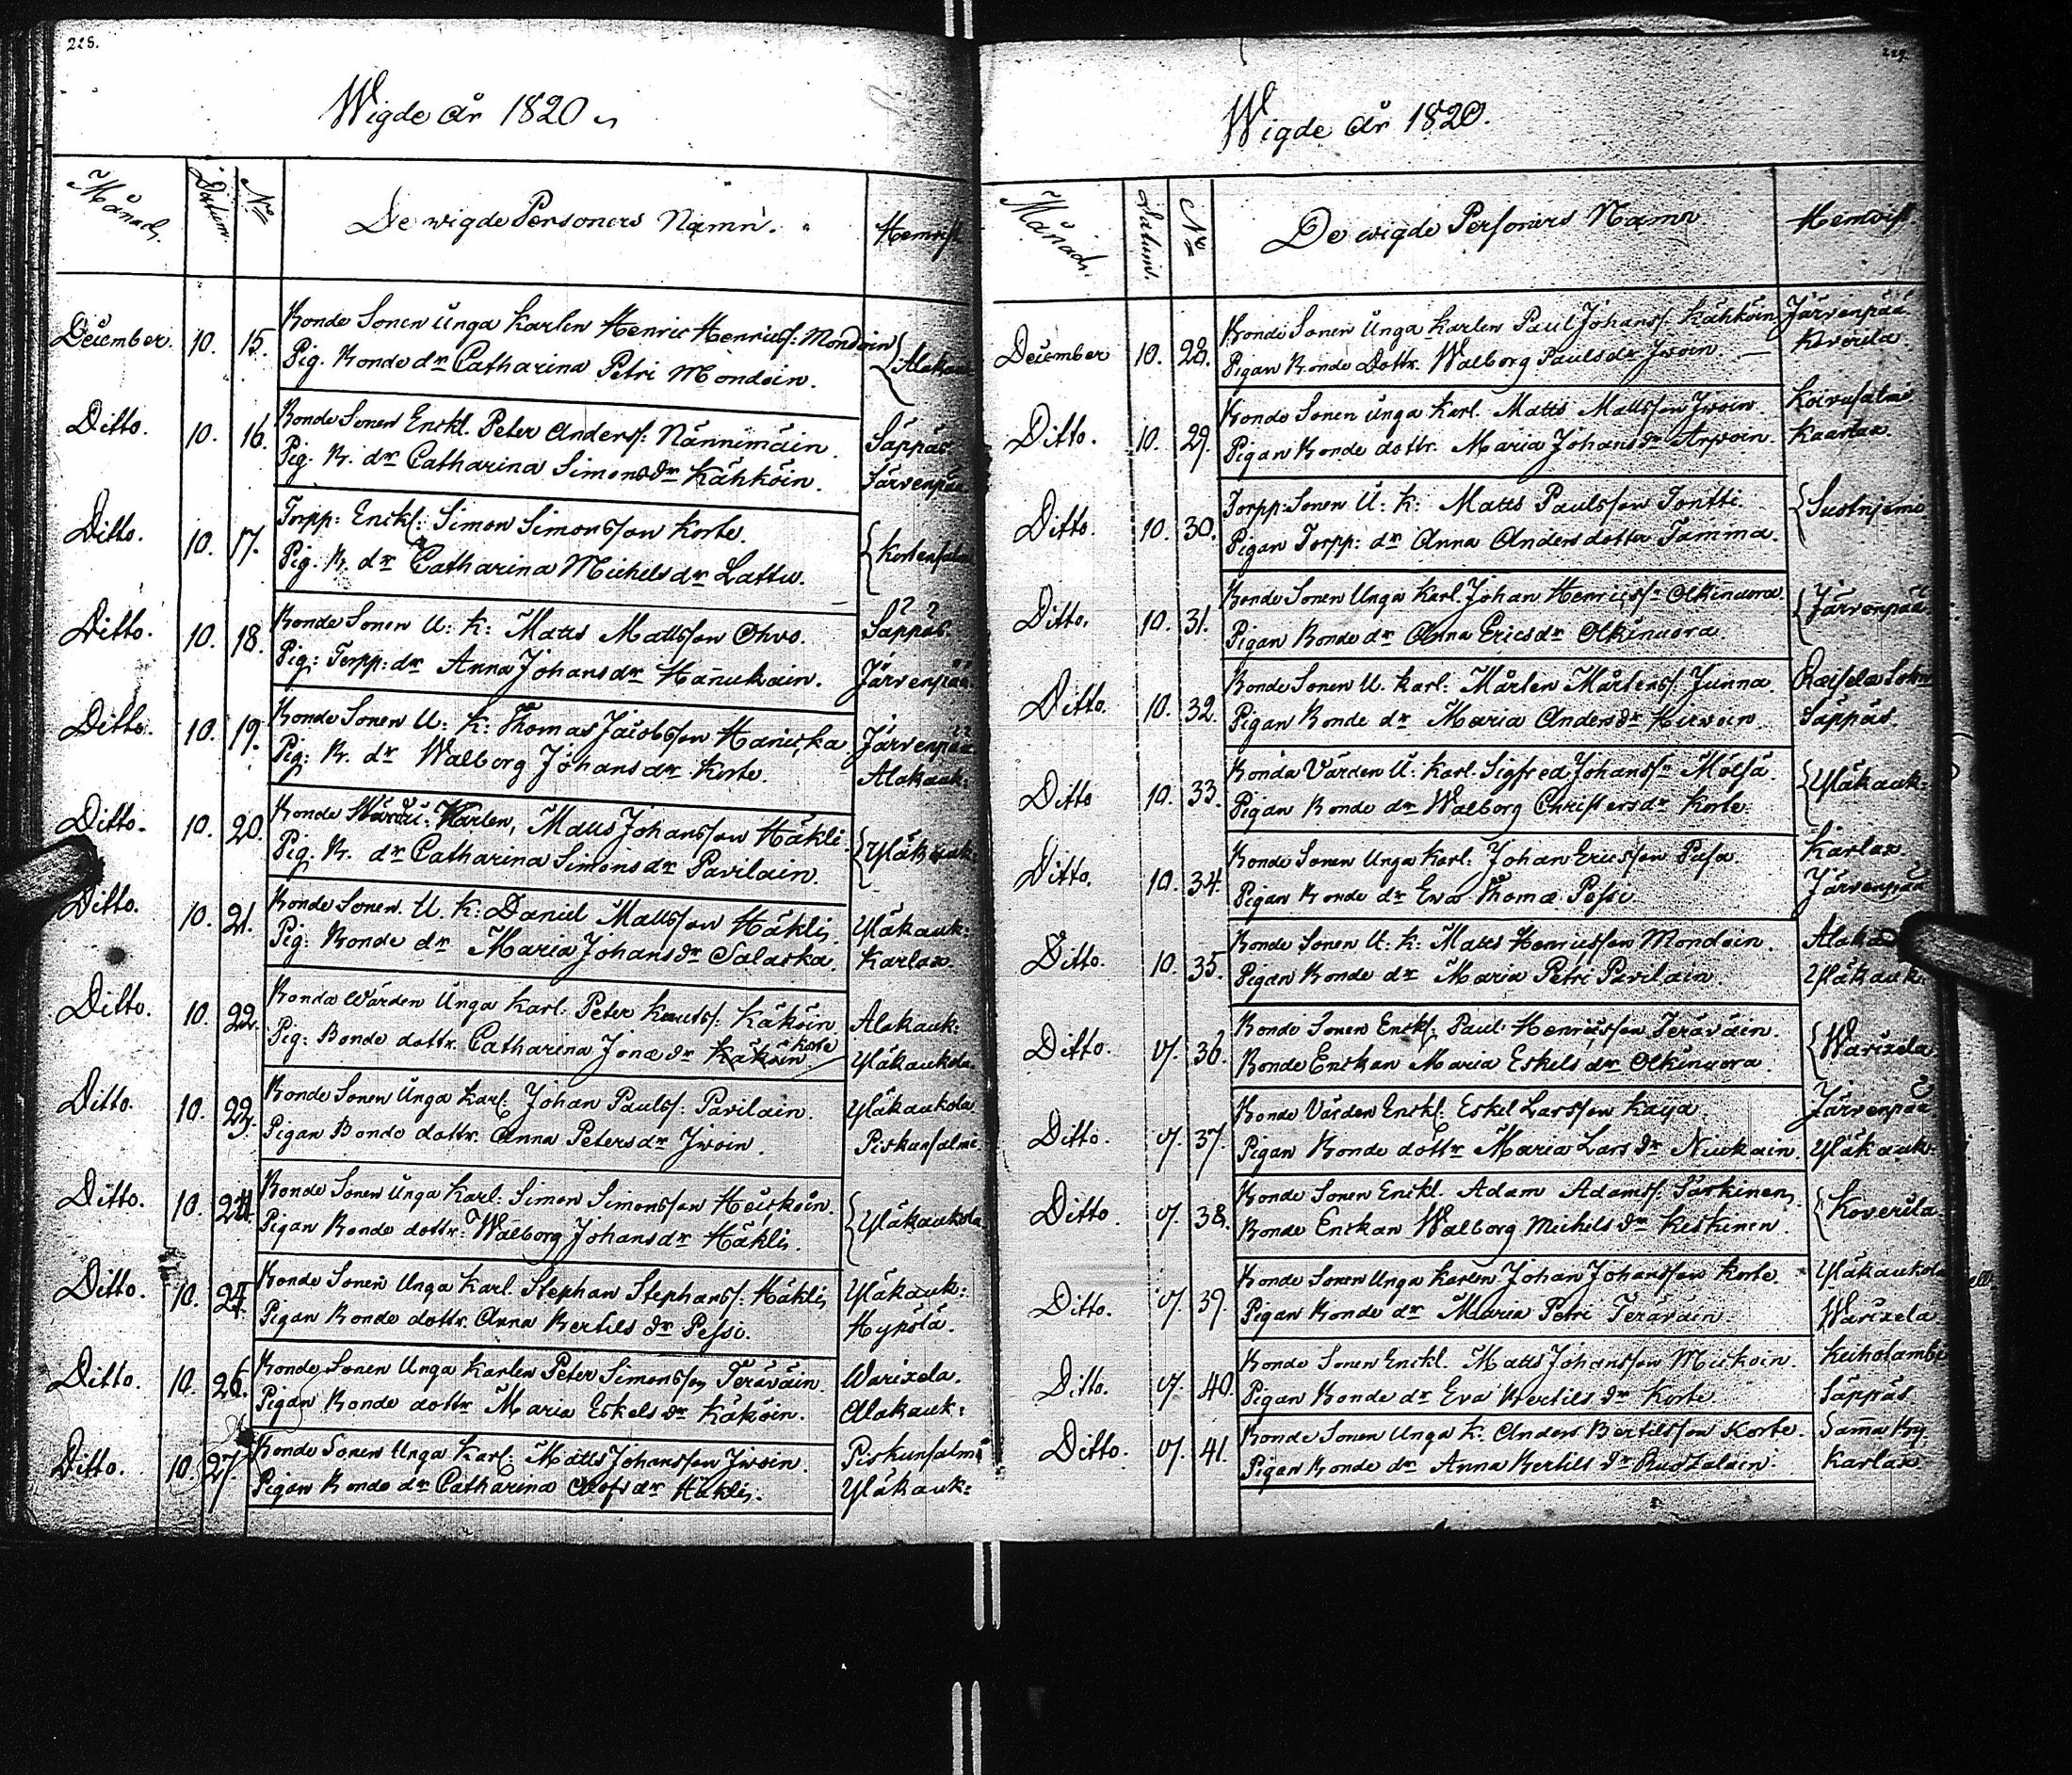 228.
Wigde år 1820
Månad. Datum. No De wigde Personers Namn. Hemvist
December. 10. 15. Bonde Sonen Unga Karlen Henric Henricss: Mondoin
Pig. Bonde dr Catharina Petri Mondoin. Alakau
Ditto. 10. 16. Bonde Sonen Enckl. Peter Anderss: Nännimäin. Säppäs
Pig. B. dr Catharina Simons dr Kähköin. Järvenpää
Ditto. 10. 17. Torpp: Enckl: Simon Simonsson Korte.
Pig. B. dr Catharina Michels dr Lattu. Kortensalm
Ditto. 10. 18. Bonde Sonen U: K: Matts Mattsson Ohvo. Säppäs
Pig: Torpp: dr Anna Johans dr Hañukain. Järvenpää
Ditto. 10. 19. Bonde Sonen U: K: Thomas Jacobsson Hañuka Järvenpää
Pig: B. dr Walborg Johans dr Korte. Alakauk:
Ditto. 10. 20. Bonde Karlen, Matts Johansson Häkli.
Pig. B. dr Catharina Simons dr Pavilain. Yläkauk:
Ditto. 10. 21. Bonde Sonen. U. K: Daniel Mattsson Häkli, Yläkauk:
Pig: Bonde dr Maria Johans dr Salaska. Karlax.
Ditto. 10. 22. Bonde Värden Unga Karl. Peter Knutss: Käköin Alakauk:
Korte
Pig: Bonde dottr. Catharina Jonæ dr Käköin Yläkaukola.
Ditto. 10. 23. Bonde Sonen Unga Karl: Johan Paulss: Pavilain. Yläkaukola
Pigan Bonde dottr. Anna Peters dr Jwoin. Piskunsalmi
Ditto. 10. 24. Bonde Sonen Unga Karl: Simon Simonsson Heiskoin.
Pigan Bonde dottr: Walborg Johans dr Häkli. Yläkaukola
Ditto. 10. 25. Bonde Sonen Unga Karl. Stephan Stephanss: Häkli Yläkauk:
Pigan Bonde dottr. Anna Bertils dr Pessi. Hypölä.
Ditto. 10. 26. Bonde Sonen Unga Karlen Peter Simonsson Teräväin. Warixela.
Pigan Bonde dottr Maria Eskels dr Käköin. Alakauk:
Ditto. 10. 27. Bonde Sonen Unga Karl: Matts Johansson Jwoin. Piskunsalmi
Pigan Bonde dr Catharina Olofs dr Häkli. Yläkauk:
229.
Wigde år 1820.
Månad. Datum. No De wigde Personers Namn Hemvist.
December 10. 28. Bonde Sonen Unga Karlen Paul Johanss. Kähköin Järvenpää
Pigan Bonde Dottr. Walborg Pauls dr Jwoin Koverila.
Ditto. 10. 29. Bonde Sonen Unga Karl. Matts Mattsson Jwoin Koivusalmi
Pigan Bonde dottr. Maria Johans dr Arwoin. Kaarlax.
Ditto. 10. 30. Torpp: Sonen U: K: Matts Paulsson Tontti.
Pigan Torpp: dr Anna Anders dotter Tamma. Suotnjemi
Ditto. 10. 31. Bonde Sonen Unga Karl. Johan Henricssn Olkinuora
Pigan Bonde dr Anna Erics dr Olkinuora. Järvenpää
Ditto. 10. 32. Bonde Sonen U. Karl: Mårten Mårtenss. Junna. Räisälä Sokn
Pigan Bonde dr Maria Anders dr Hirvoin. Säppäs.
Ditto 10. 33. Bonde Värden U: Karl. Sigfred Johanssn Mölsä
Pigan Bonde dr Walborg Christers dr Korte. Yläkauk:
Ditto. 10. 34. Bonde Sonen Unga Karl: Johan Ericsson Pusa. Karlax.
Pigan Bonde dr Eva Thomæ Pessi. Järvenpää
Ditto. 10. 35. Bonde Sonen U: K: Matts Henricsson Mondoin. Alaka
Pigan Bonde dr Maria Petri Pavilain. Yläkauk:
Ditto. 17. 36. Bonde Sonen Enckl: Paul Henricsson Teräväin.
Bonde Enckan Maria Eskels dr Olkinuora. Warixela
Ditto. 17. 37. Bonde Värden Enckl: Eskel Larsson Kaya Järvenpää
Pigan Bonde dottr Maria Lars dr Niukain Yläkauk:
Ditto. 17. 38. Bonde Sonen Enckl. Adam Adamss: Parkinen
Bonde Enckan Walborg Michels dr Keskinen Koverila
Ditto. 17. 39. Bonde Sonen Unga Karlen Johan Johansson Korte. Yläkaukola
Pigan Bonde dr Maria Petri Teräväin. Warixela
Ditto. 17. 40. Bonde Sonen Enckl. Matts Johansson Mickoin. Keiholambi
Pigan Bonde dr Eva Bertils dr Korte. Säppäs
Ditto. 17. 41. Bonde Sonen Unga K. Anders Bertilsson Korte. Sam̃a By.
Pigan Bonde dr Anna Bertils dr Ruotzalain. Karlax